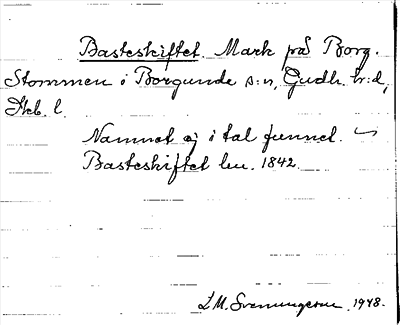 Basteskiftet. Mark på Borg.
Stommen i Borgunda s:n, Gudh. h:d,
Skb. l.
Namnet ej i tal funnet. ~
Basteskiftet lm. 1842.
L.M. Svenungsson, 1948.